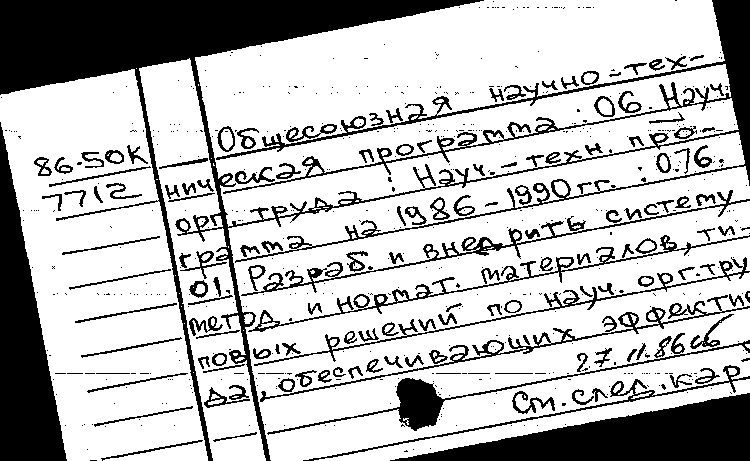 Общесоюзная научно-тех-
86-50К
ническая программа: 06. Науч.
7712
орг. труда: Науч.-техн. про-
грамма на 1986-1990 гг.: 0.76.
01. Разраб. и внедрить систему
метод. и нормат. материалов, ти-
повых решений по науч. орг. тру
да, обеспечивающих эффектив
27.11.86
См. след. кар